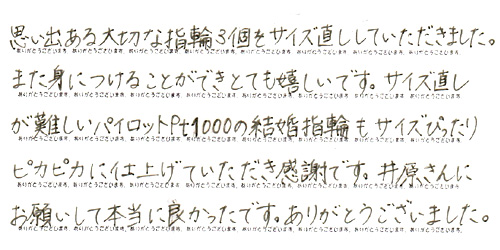 思い出ある大切な指輪3個をサイズ直ししていただきました。
また身につけることができとても嬉しいです。サイズ直し
が難しいパイロットPt1000の結婚指輪もサイズぴったり
ピカピカに仕上げていただき感謝です。井原さんに
お願いして本当に良かったです。ありがとうございました。